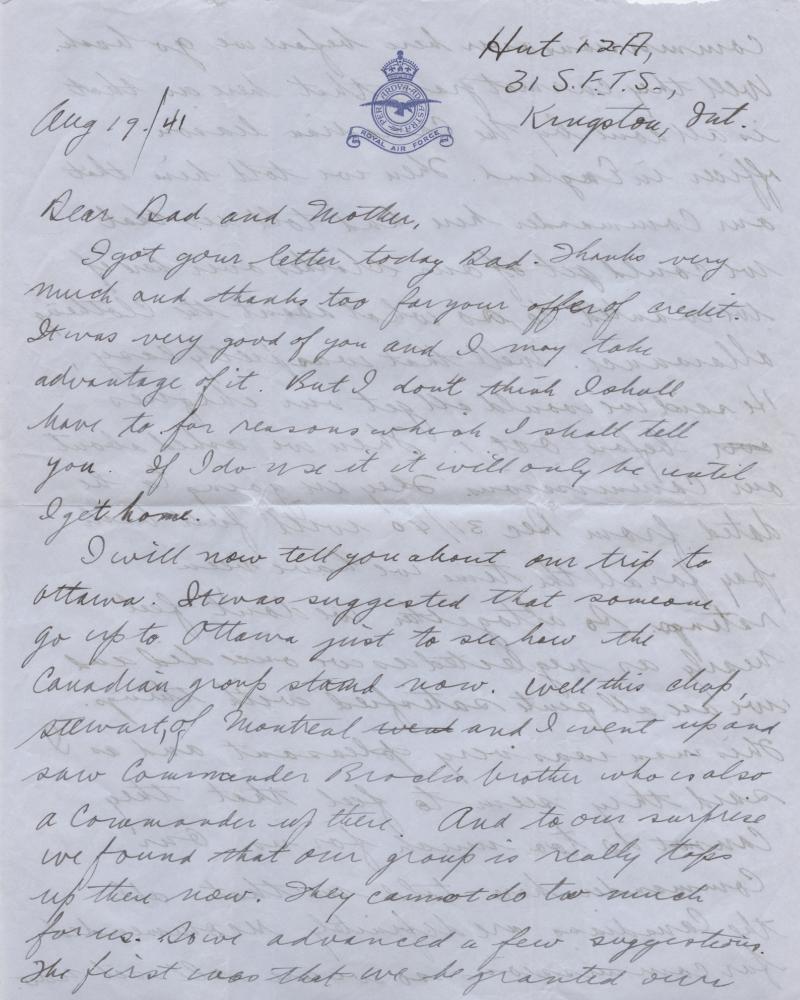 Hut 12A,
31 S.F.T.S.,
Kingston, Ont.
Aug 19./41
PER ARDVA AD ASTRA
ROYAL AIR FORCE
Dear Dad and Mother,
I got your letter today Dad. Thanks very
much and thanks too for your offer of credit.
It was very good of you and I may take
advantage of it. But I don't think I shall
have to for reasons which I shall tell
you. If I do use it it will only be until
I get home.
I will now tell you about our trip to
Ottawa. It was suggested that someone
go up to Ottawa just to see how the
Canadian group stand now. Well this chap,
Stewart, of Montreal went and I went up and
saw Commander Brock's brother who is also
a Commander up there. And to our surprise
we found that our group is really tops
up there now. They cannot do too much
for us. So we advanced a few suggestions.
The first was that we be granted our